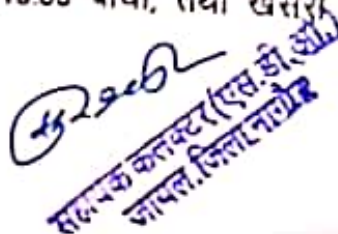 बीघा, तथा खसरा
सहायक कलक्टर (एस.डी.ओ.)
जायल, जिला नागौर